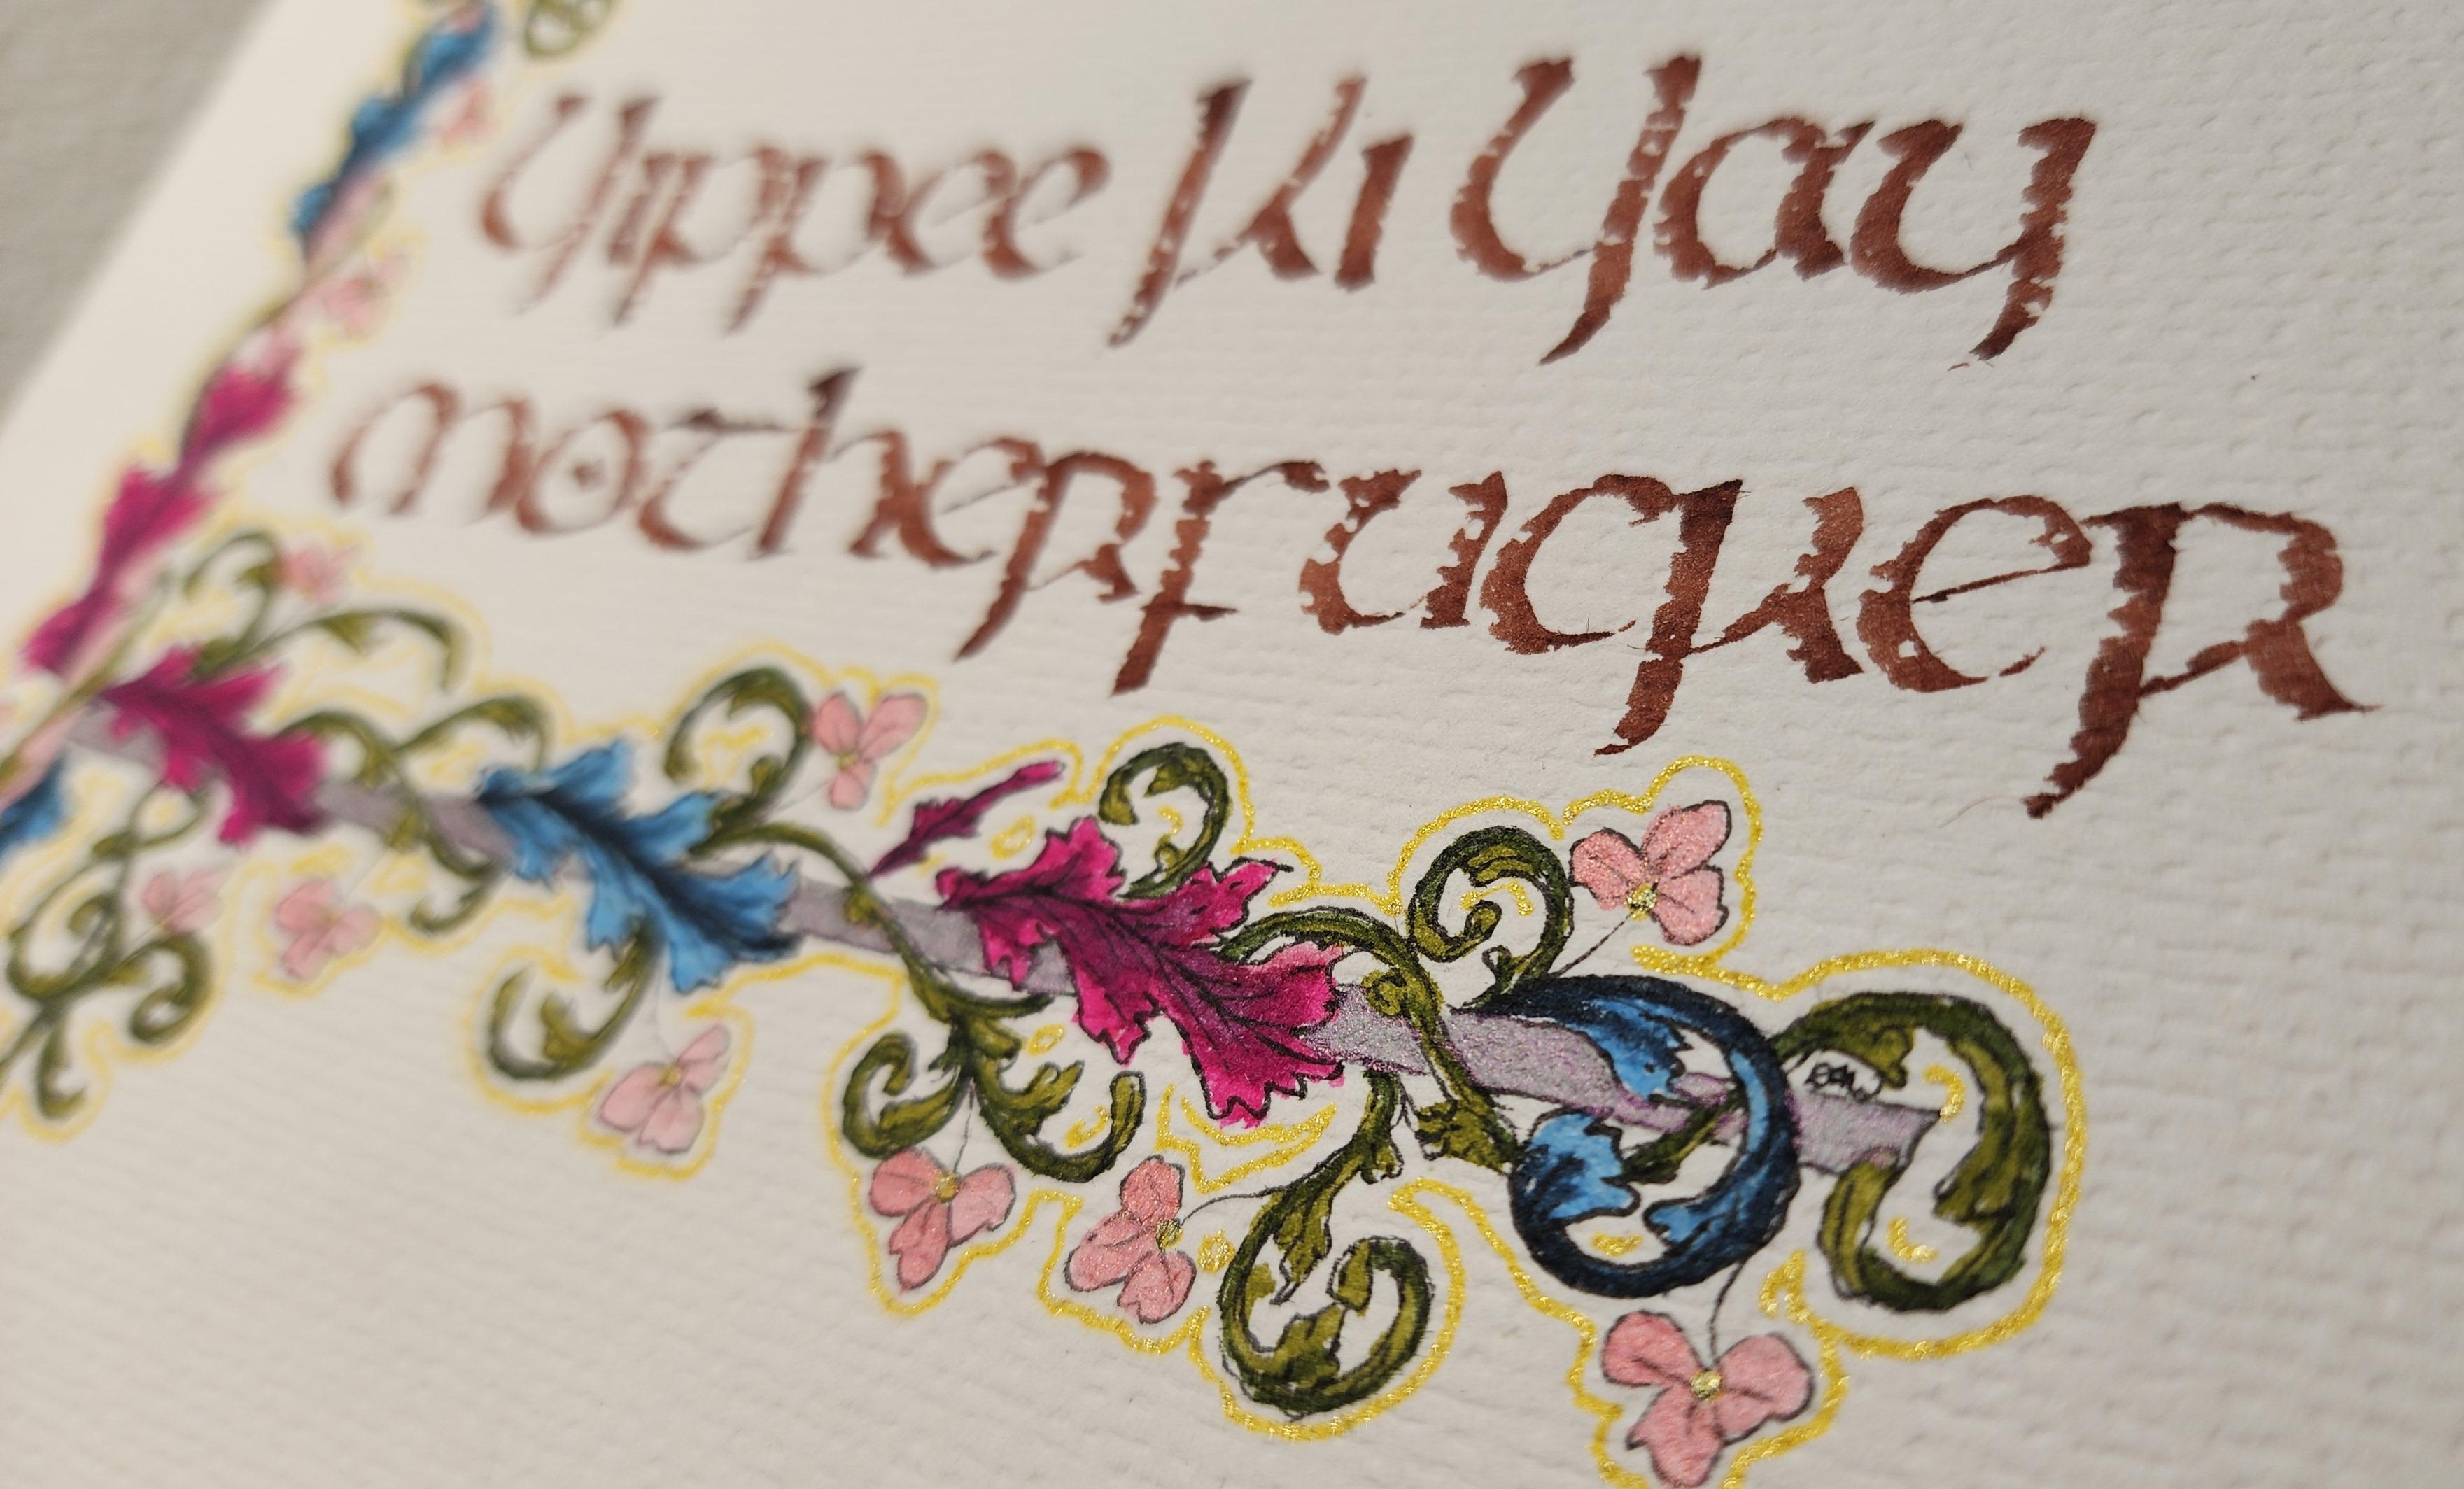 Yippee Ki Yay
motherfucker